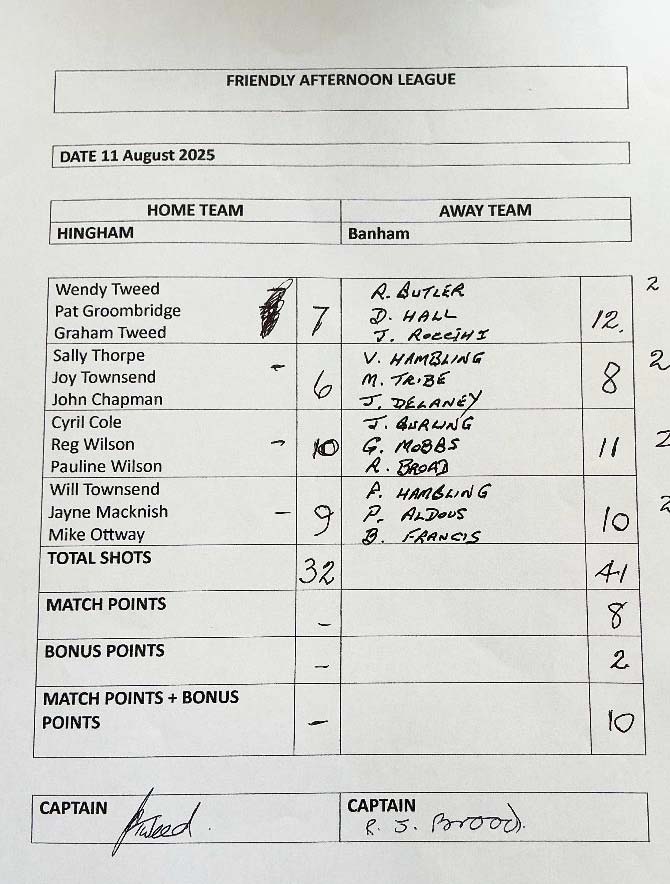 FRIENDLY AFTERNOON LEAGUE
DATE 11 August 2025
HOME TEAM AWAY TEAM
HINGHAM Banham
Wendy Tweed R. BUTLER 2
Pat Groombridge 7 D. HALL 12.
Graham Tweed J.
Sally Thorpe - V. HAMBLING 2
Joy Townsend 6 M. TRIBE 8
John Chapman J. DELANEY
Cyril Cole J. BURLING
Reg Wilson - 10 G. MOBBS 11 2
Pauline Wilson R. BROAD
Will Townsend F. HAMBLING 2
Jayne Macknish - 9 P. ALDOUS 10
Mike Ottway B. FRANCIS
TOTAL SHOTS 32 41
MATCH POINTS - 8
BONUS POINTS - 2
MATCH POINTS + BONUS
POINTS - 10
CAPTAIN Tweed. CAPTAIN
R. J. Broad.